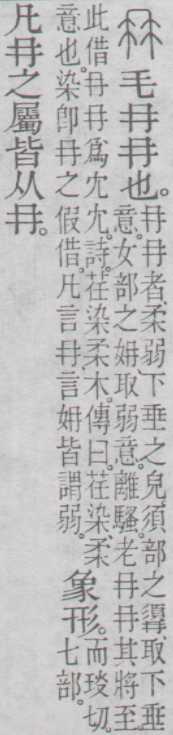 冄 毛冄冄也。
冄冄者、柔弱下垂之皃。須部之取下垂
意。女部之姌取弱意。離騷。老冄冄其將至。
此借冄冄爲冘冘。詩。荏染柔木。傳曰。荏染、柔
意也。染卽冄之假借。凡言冄言姌皆謂弱。
象形。
而琰切。
七部。
凡冄之屬皆从冄。